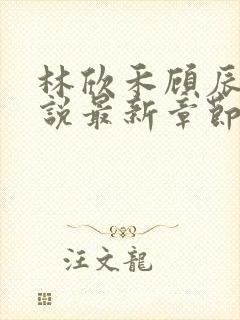 林欣禾顾辰
說最新章節
汪文龍